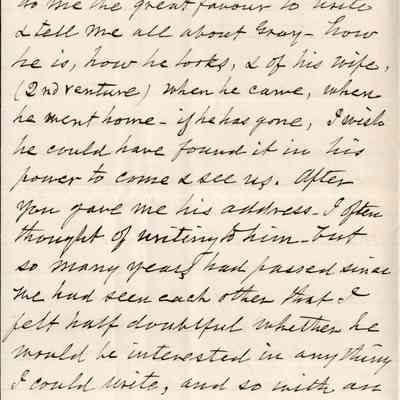 do me the great favour to write
& tell me all about Gray - how
he is, how he looks, & of his wife,
(2nd venture) when he came, when
he went home - if he has gone, I wish
he could have found it in his
power to come & see us. After
you gave me his address - I often
thought of writing to him - but
so many years had passed since
we had seen each other that I
felt half doubtful whether he
would be interested in anything
I could write, and so with an